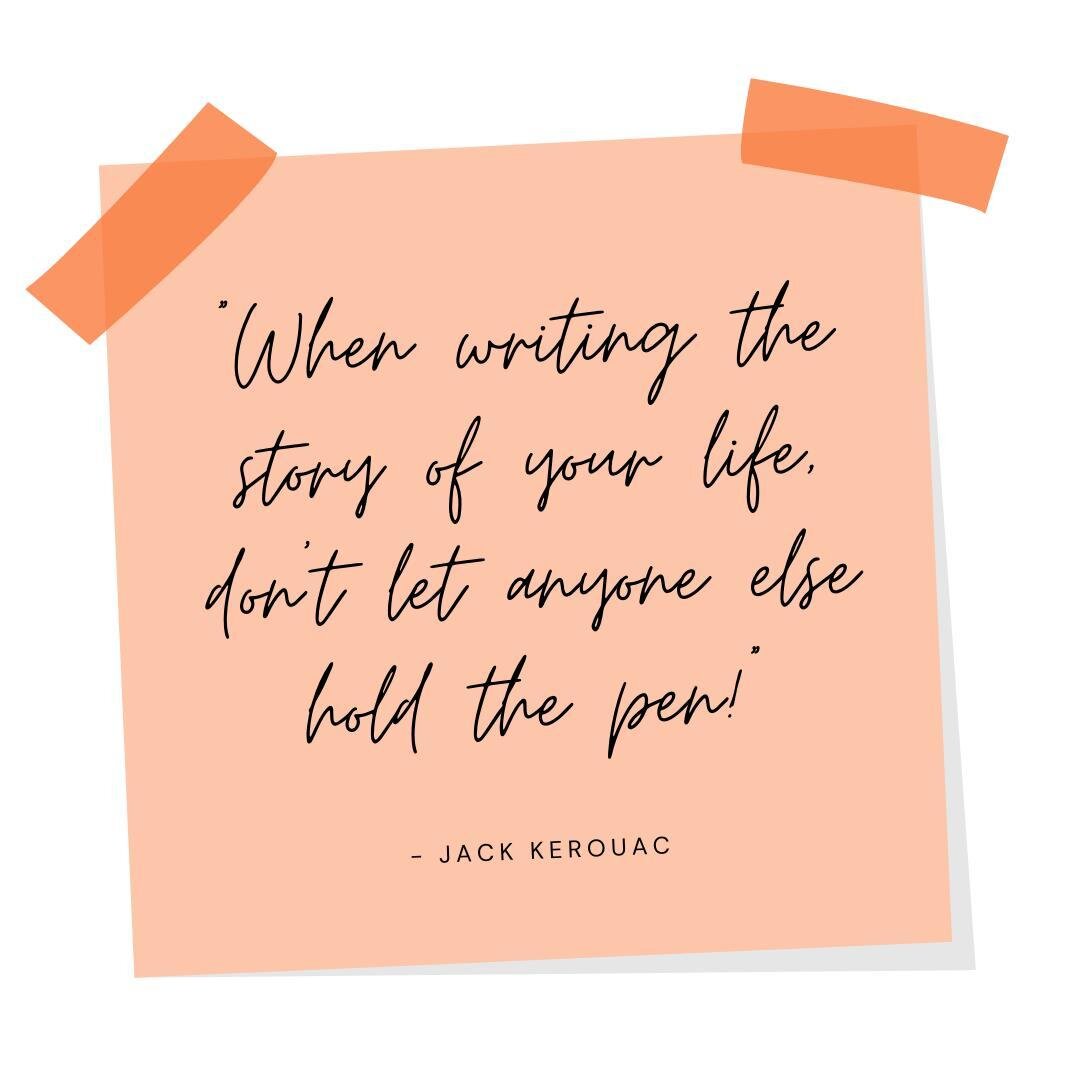 ”When writing the
story of your life,
don't let anyone else
hold the pen!”
- JACK KEROUAC